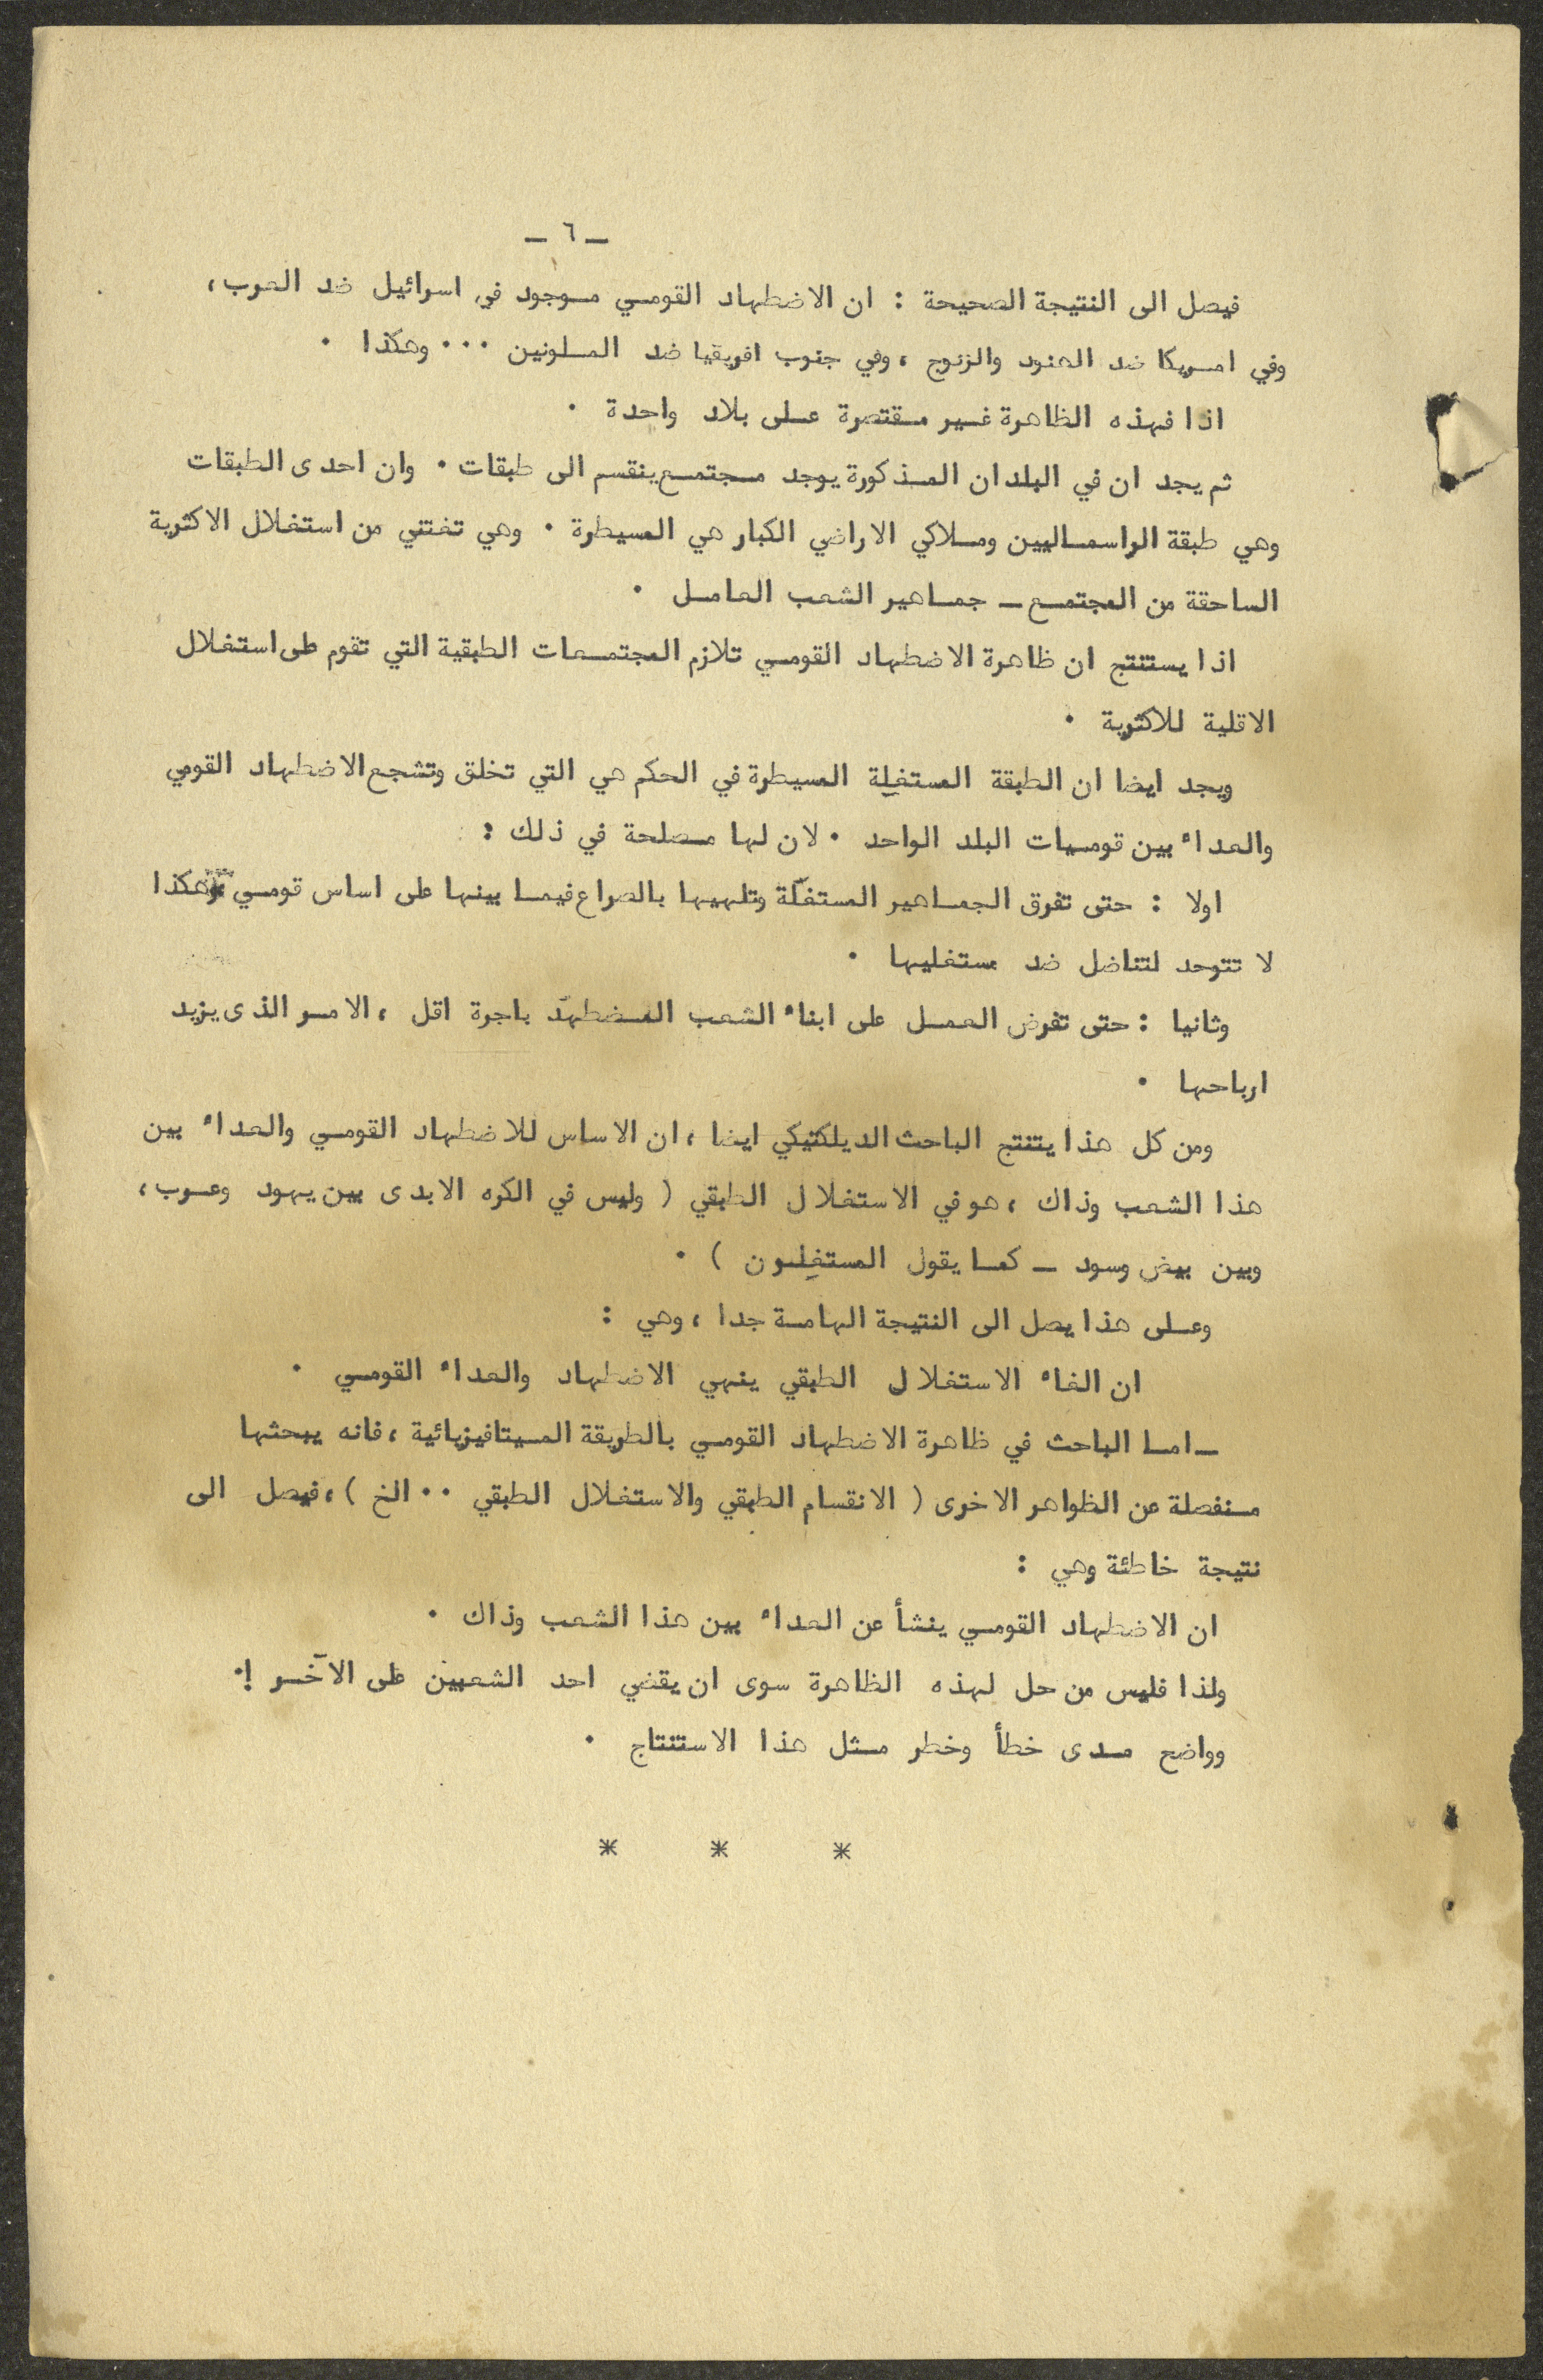 – ٦ –
فيصل الى النتيجة الصحيحة : ان الاضطهاد القومي موجود في اسرائيل ضد العرب ،
وفي امريكا ضد الهنود والزنوج ، وفي جنوب افريقيا ضد الملونين ٠٠٠ وهكذا ٠
اذا فهذه الظاهرة غير مقتصرة على بلاد واحدة ٠
ثم يجد ان في البلدان المذكورة يوجد مجتمع ينقسم الى طبقات ٠ وان احدى الطبقات
وهي طبقة الراسماليين وملاكي الاراضي الكبار هي المسيطرة ٠ وهي تغتني من استغلال الاكثرية
الساحقة من المجتمع – جماهير الشعب العامل ٠
اذا يستنتج ان ظاهرة الاضطهاد القومي تلازم المجتمعات الطبقية التي تقوم على استغلال
الاقلية للاكثرية ٠
ويجد ايضا ان الطبقة المستغِلة المسيطرة في الحكم هي التي تخلق وتشجع الاضطهاد القومي
والعداء بين قوميات البلد الواحد ٠ لان لها مصلحة في ذلك :
اولا : حتى تفرق الجماهير المستغَلّة وتلهيها بالصراع فيما بينها على اساس قومي وهكذا
لا تتوحد لتناضل ضد مستغليها ٠
وثانيا : حتى تفرض العمل على ابناء الشعب المضطهَد باجرة اقل ، الامر الذى يزيد
ارباحها ٠
ومن كل هذا يتنتج الباحث الديلكتيكي ايضا ، ان الاساس للاضطهاد القومي والعداء بين
هذا الشعب وذاك ، هو في الاستغلال الطبقي ( وليس في الكره الابدى بين يهود وعرب ،
وبين بيض وسود – كما يقول المستغِلون ) ٠
وعلى هذا يصل الى النتيجة الهامة جدا ، وهي :
ان الغاء الاستغلال الطبقي ينهي الاضطهاد والعداء القومي ٠
– اما الباحث في ظاهرة الاضطهاد القومي بالطريقة الميتافيزيائية ، فانه يبحثها
منفصلة عن الظواهر الاخرى ( الانقسام الطبقي والاستغلال الطبقي ٠٠ الخ ) ، فيصل الى
نتيجة خاطئة وهي :
ان الاضطهاد القومي ينشأ عن العداء بين هذا الشعب وذاك ٠
ولذا فليس من حل لهذه الظاهرة سوى ان يقضي احد الشعبين على الآخر !٠
وواضح مدى خطأ وخطر مثل هذا الاستنتاج ٠
* * *